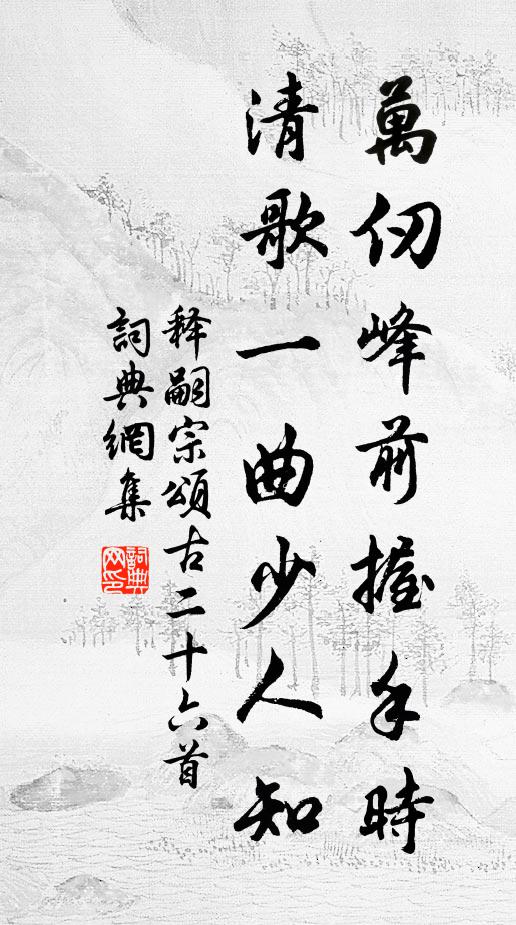 萬仞峰前握手時
清歌一曲少人知
释嗣宗頌古二十六首
詞典網集
詞典网印